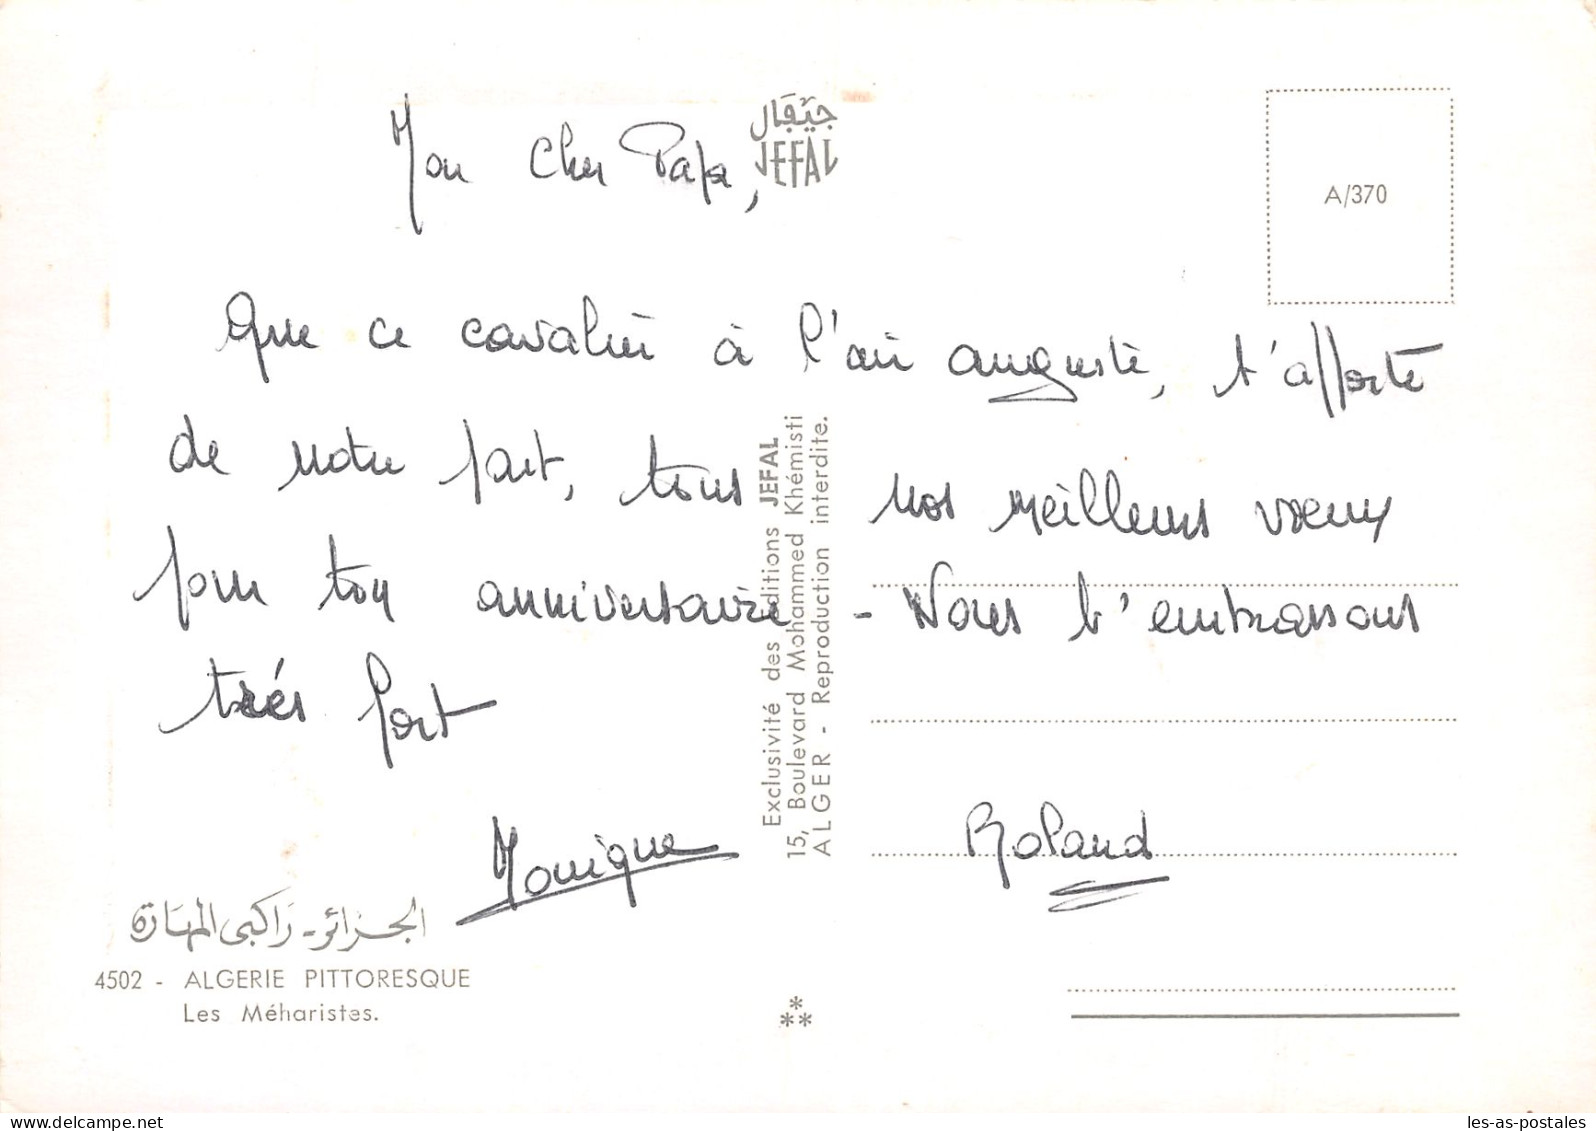 جيفال
JEFAL
A/370
Mon cher Papa,
Que ce cavalier à l'air auguste, t'apporte
de notre part, tous nos meilleurs vœux
pour ton anniversaire - Nous t'embrassons
très fort
Monique
Roland
Exclusivité des éditions JEFAL
15, Boulevard Mohammed Khémisti
ALGER - Reproduction interdite.
الجزائر - راكبي المهارة
4502 - ALGERIE PITTORESQUE
Les Méharistes.
les-as-postales